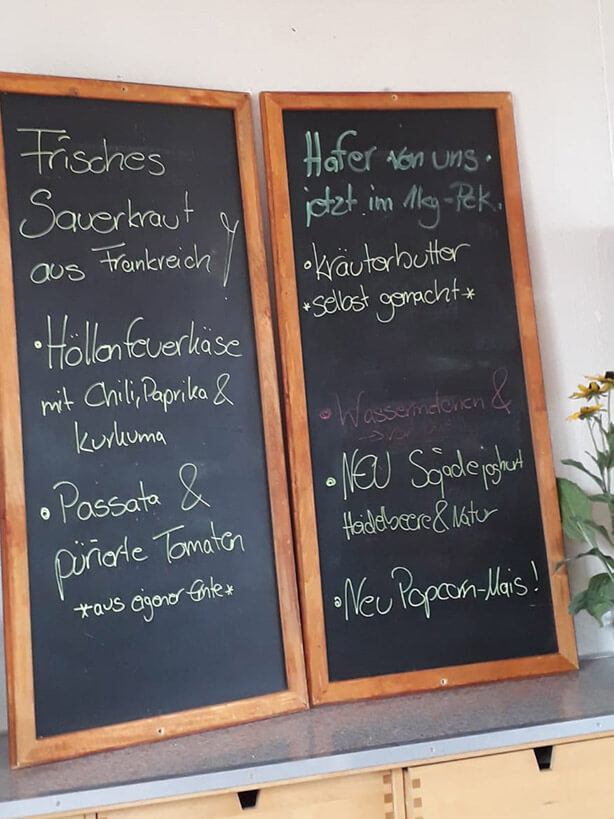 Frisches
Sauerkraut
aus Frankreich!
• Höllenfeuerkäse
mit Chili, Paprika &
Kurkuma
• Passata &
pürierte Tomaten
*aus eigener Ernte*
Hafer von uns.
jetzt im 1kg-Pck.
• Kräuterbutter
*selbst gemacht*
• Wassermelonen &
• NEU Sojadejoghurt
Heidelbeere & Natur
• Neu Popcorn-Mais!